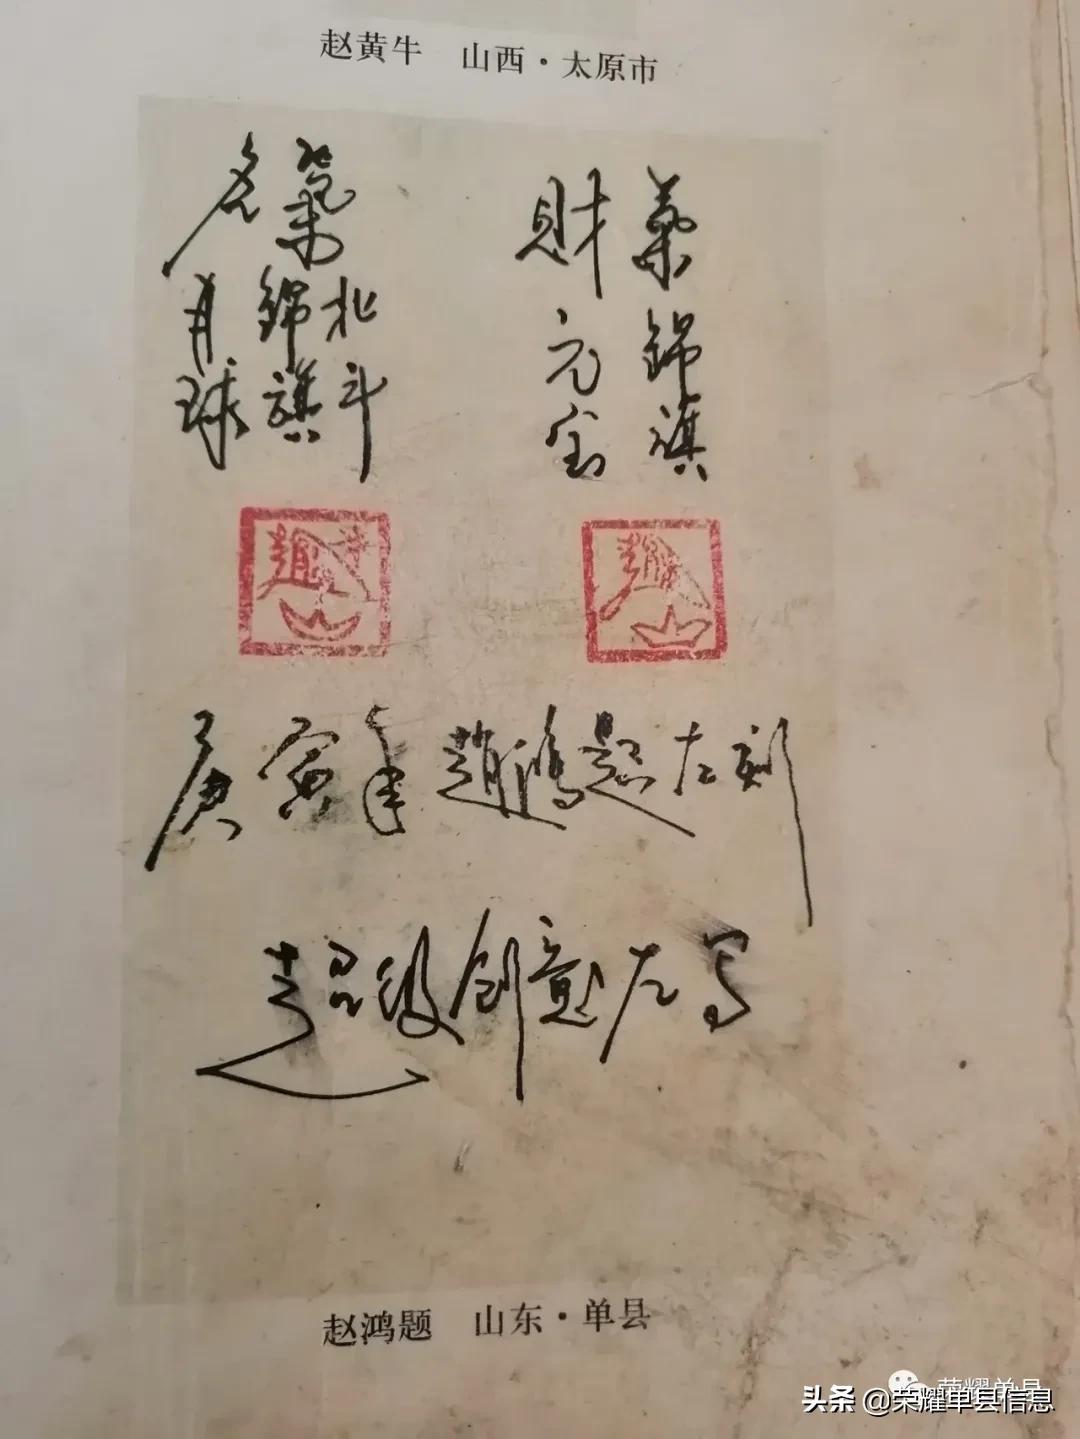 赵黄牛 山西·太原市
錦旗
財元宝
北斗
錦旗
月球
趙
趙
庚寅年趙鴻題左刻
超级创意左写
赵鸿题 山东·单县
荣耀单县
头条 @荣耀单县信息